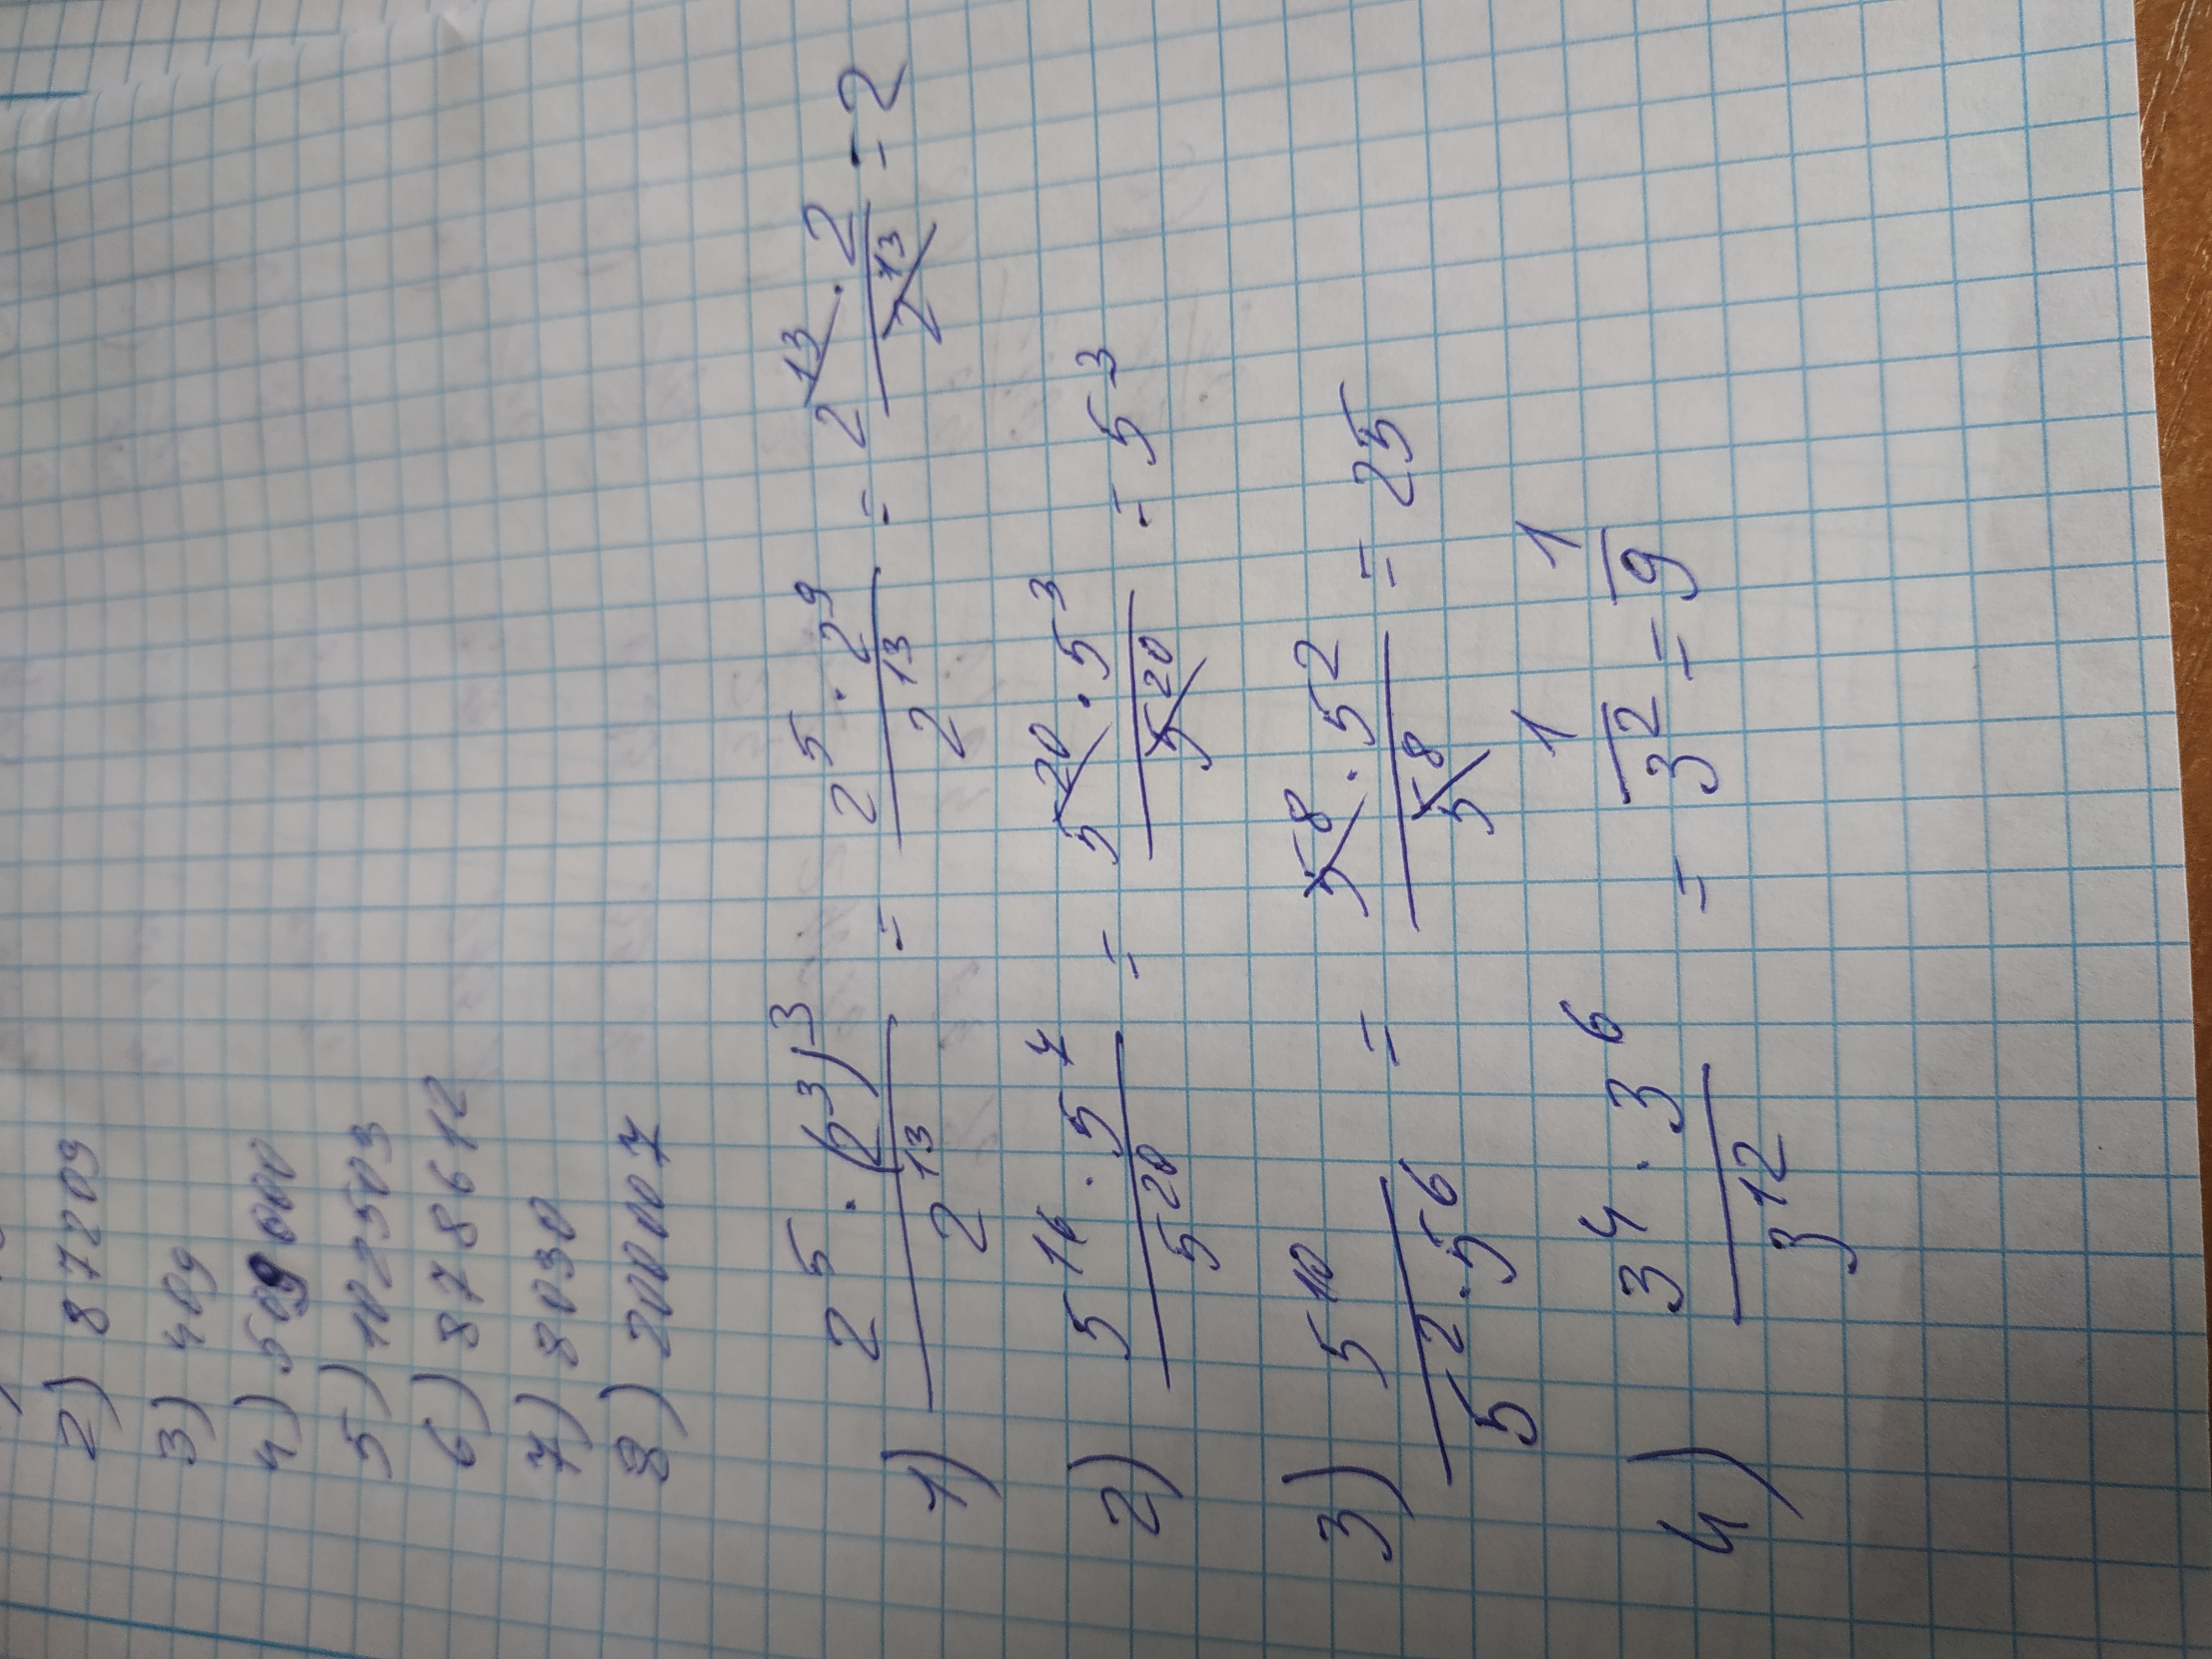 2) 87209
3) 409
4) 509000
5) 1029503
6) 878612
7) 8030
8) 2000007
1) 2⁵ · (2³)³ / 2¹³ = 2⁵ · 2⁹ / 2¹³ = 2¹³ · 2 / 2¹³ = 2
2) 5¹⁶ · 5⁷ / 5²⁰ = 5²⁰ · 5³ / 5²⁰ = 5³
3) 5¹⁰ / 5² · 5⁶ = 5⁸ · 5² / 5⁸ = 25
4) 3⁴ · 3⁶ / 3¹² = 1 / 3² = 1 / 9